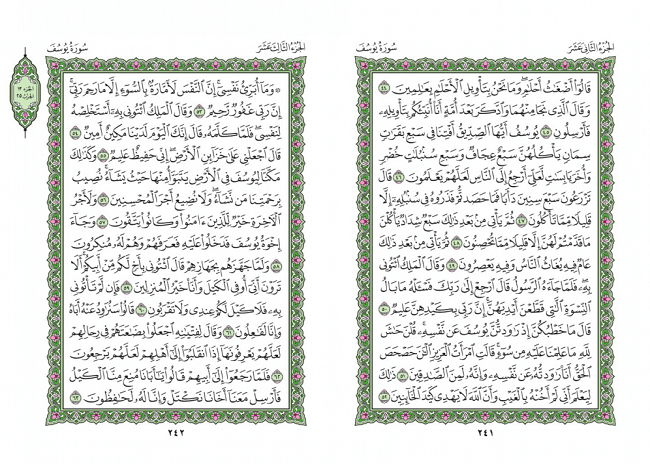 الجُزْءُ الثَّانِي عَشَرَ سُورَةُ يُوسُفَ
قَالُوٓاْ أَضْغَٰثُ أَحْلَٰمٖۖ وَمَا نَحْنُ بِتَأْوِيلِ ٱلْأَحْلَٰمِ بِعَٰلِمِينَ ٤٤
وَقَالَ ٱلَّذِي نَجَا مِنْهُمَا وَٱدَّكَرَ بَعْدَ أُمَّةٍ أَنَا۠ أُنَبِّئُكُم بِتَأْوِيلِهِۦ
فَأَرْسِلُونِ ٤٥ يُوسُفُ أَيُّهَا ٱلصِّدِّيقُ أَفْتِنَا فِي سَبْعِ بَقَرَٰتٖ
سِمَانٖ يَأْكُلُهُنَّ سَبْعٌ عِجَافٞ وَسَبْعِ سُنۢبُلَٰتٍ خُضْرٖ
وَأُخَرَ يَابِسَٰتٖ لَّعَلِّيٓ أَرْجِعُ إِلَى ٱلنَّاسِ لَعَلَّهُمْ يَعْلَمُونَ ٤٦ قَالَ
تَزْرَعُونَ سَبْعَ سِنِينَ دَأَبٗا فَمَا حَصَدتُّمْ فَذَرُوهُ فِي سُنۢبُلِهِۦٓ إِلَّا
قَلِيلٗا مِّمَّا تَأْكُلُونَ ٤٧ ثُمَّ يَأْتِي مِنۢ بَعْدِ ذَٰلِكَ سَبْعٞ شِدَادٞ يَأْكُلْنَ
مَا قَدَّمْتُمْ لَهُنَّ إِلَّا قَلِيلٗا مِّمَّا تُحْصِنُونَ ٤٨ ثُمَّ يَأْتِي مِنۢ بَعْدِ ذَٰلِكَ
عَامٞ فِيهِ يُغَاثُ ٱلنَّاسُ وَفِيهِ يَعْصِرُونَ ٤٩ وَقَالَ ٱلْمَلِكُ ٱئْتُونِي
بِهِۦۖ فَلَمَّا جَآءَهُ ٱلرَّسُولُ قَالَ ٱرْجِعْ إِلَىٰ رَبِّكَ فَسْـَٔلْهُ مَا بَالُ
ٱلنِّسْوَةِ ٱلَّٰتِي قَطَّعْنَ أَيْدِيَهُنَّۚ إِنَّ رَبِّي بِكَيْدِهِنَّ عَلِيمٞ ٥٠
قَالَ مَا خَطْبُكُنَّ إِذْ رَٰوَدتُّنَّ يُوسُفَ عَن نَّفْسِهِۦۚ قُلْنَ حَٰشَ
لِلَّهِ مَا عَلِمْنَا عَلَيْهِ مِن سُوٓءٖۚ قَالَتِ ٱمْرَأَتُ ٱلْعَزِيزِ ٱلْـَٰٔنَ حَصْحَصَ
ٱلْحَقُّ أَنَا۠ رَٰوَدتُّهُۥ عَن نَّفْسِهِۦ وَإِنَّهُۥ لَمِنَ ٱلصَّٰدِقِينَ ٥١ ذَٰلِكَ
لِيَعْلَمَ أَنِّي لَمْ أَخُنْهُ بِٱلْغَيْبِ وَأَنَّ ٱللَّهَ لَا يَهْدِي كَيْدَ ٱلْخَآئِنِينَ ٥٢
٢٤١
الجُزْءُ الثَّالِثَ عَشَرَ سُورَةُ يُوسُفَ
۞ وَمَآ أُبَرِّئُ نَفْسِيٓۚ إِنَّ ٱلنَّفْسَ لَأَمَّارَةُۢ بِٱلسُّوٓءِ إِلَّا مَا رَحِمَ رَبِّيٓۚ
إِنَّ رَبِّي غَفُورٞ رَّحِيمٞ ٥٣ وَقَالَ ٱلْمَلِكُ ٱئْتُونِي بِهِۦٓ أَسْتَخْلِصْهُ
لِنَفْسِيۖ فَلَمَّا كَلَّمَهُۥ قَالَ إِنَّكَ ٱلْيَوْمَ لَدَيْنَا مَكِينٌ أَمِينٞ ٥٤
قَالَ ٱجْعَلْنِي عَلَىٰ خَزَآئِنِ ٱلْأَرْضِۖ إِنِّي حَفِيظٌ عَلِيمٞ ٥٥ وَكَذَٰلِكَ
مَكَّنَّا لِيُوسُفَ فِي ٱلْأَرْضِ يَتَبَوَّأُ مِنْهَا حَيْثُ يَشَآءُۚ نُصِيبُ
بِرَحْمَتِنَا مَن نَّشَآءُۖ وَلَا نُضِيعُ أَجْرَ ٱلْمُحْسِنِينَ ٥٦ وَلَأَجْرُ
ٱلْأٓخِرَةِ خَيْرٞ لِّلَّذِينَ ءَامَنُواْ وَكَانُواْ يَتَّقُونَ ٥٧ وَجَآءَ
إِخْوَةُ يُوسُفَ فَدَخَلُواْ عَلَيْهِ فَعَرَفَهُمْ وَهُمْ لَهُۥ مُنكِرُونَ
٥٨ وَلَمَّا جَهَّزَهُم بِجَهَازِهِمْ قَالَ ٱئْتُونِي بِأَخٖ لَّكُم مِّنْ أَبِيكُمْۚ أَلَا
تَرَوْنَ أَنِّيٓ أُوفِي ٱلْكَيْلَ وَأَنَا۠ خَيْرُ ٱلْمُنزِلِينَ ٥٩ فَإِن لَّمْ تَأْتُونِي
بِهِۦ فَلَا كَيْلَ لَكُمْ عِندِي وَلَا تَقْرَبُونِ ٦٠ قَالُواْ سَنُرَٰوِدُ عَنْهُ أَبَاهُ
وَإِنَّا لَفَٰعِلُونَ ٦١ وَقَالَ لِفِتْيَٰنِهِ ٱجْعَلُواْ بِضَٰعَتَهُمْ فِي رِحَالِهِمْ
لَعَلَّهُمْ يَعْرِفُونَهَآ إِذَا ٱنقَلَبُوٓاْ إِلَىٰٓ أَهْلِهِمْ لَعَلَّهُمْ يَرْجِعُونَ
٦٢ فَلَمَّا رَجَعُوٓاْ إِلَىٰٓ أَبِيهِمْ قَالُواْ يَٰٓأَبَانَا مُنِعَ مِنَّا ٱلْكَيْلُ
فَأَرْسِلْ مَعَنَآ أَخَانَا نَكْتَلْ وَإِنَّا لَهُۥ لَحَٰفِظُونَ ٦٣
٢٤٢
الجزء ١٣
الحزب ٢٥